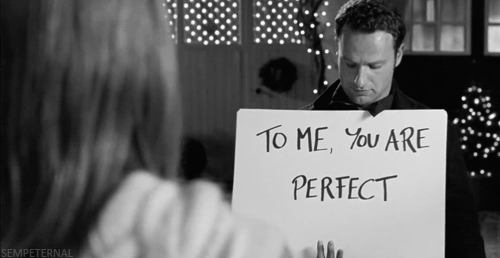 TO ME, YOU ARE
PERFECT
SEMPETERNAL